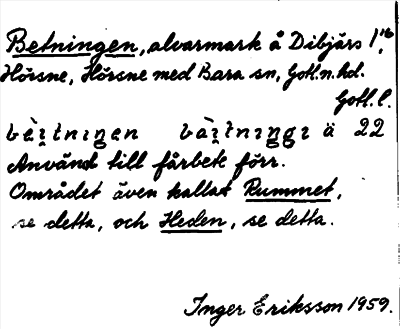 Betningen, alvarmark å Dibjärs 1¹⁶,
Hörsne, Hörsne med Bara sn, Gotl.n.hd.
Gotl.l.
Använd till fårbete förr.
Området även kallat Rummet,
se detta, och Heden, se detta.
Inger Eriksson 1959.